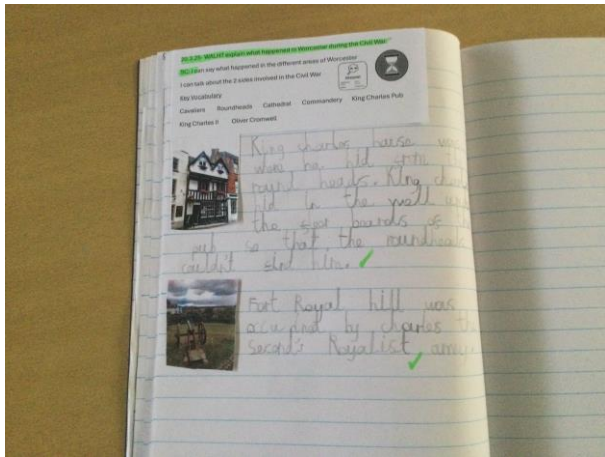 20.3.25- WALHT explain what happened in Worcester during the Civil War.
I can say what happened in the different areas of Worcester
I can talk about the 2 sides involved in the Civil War
Key Vocabulary
Cavaliers Roundheads Cathedral Commandery King Charles Pub
King Charles II Oliver Cromwell
King charles house was
were he hid from the
round heads. King charles
hid in the wall and
the floor boards of the
pub so that the roundheads
couldn't find him.
Fort Royal hill was
occupied by charles the
second's Royalist army.